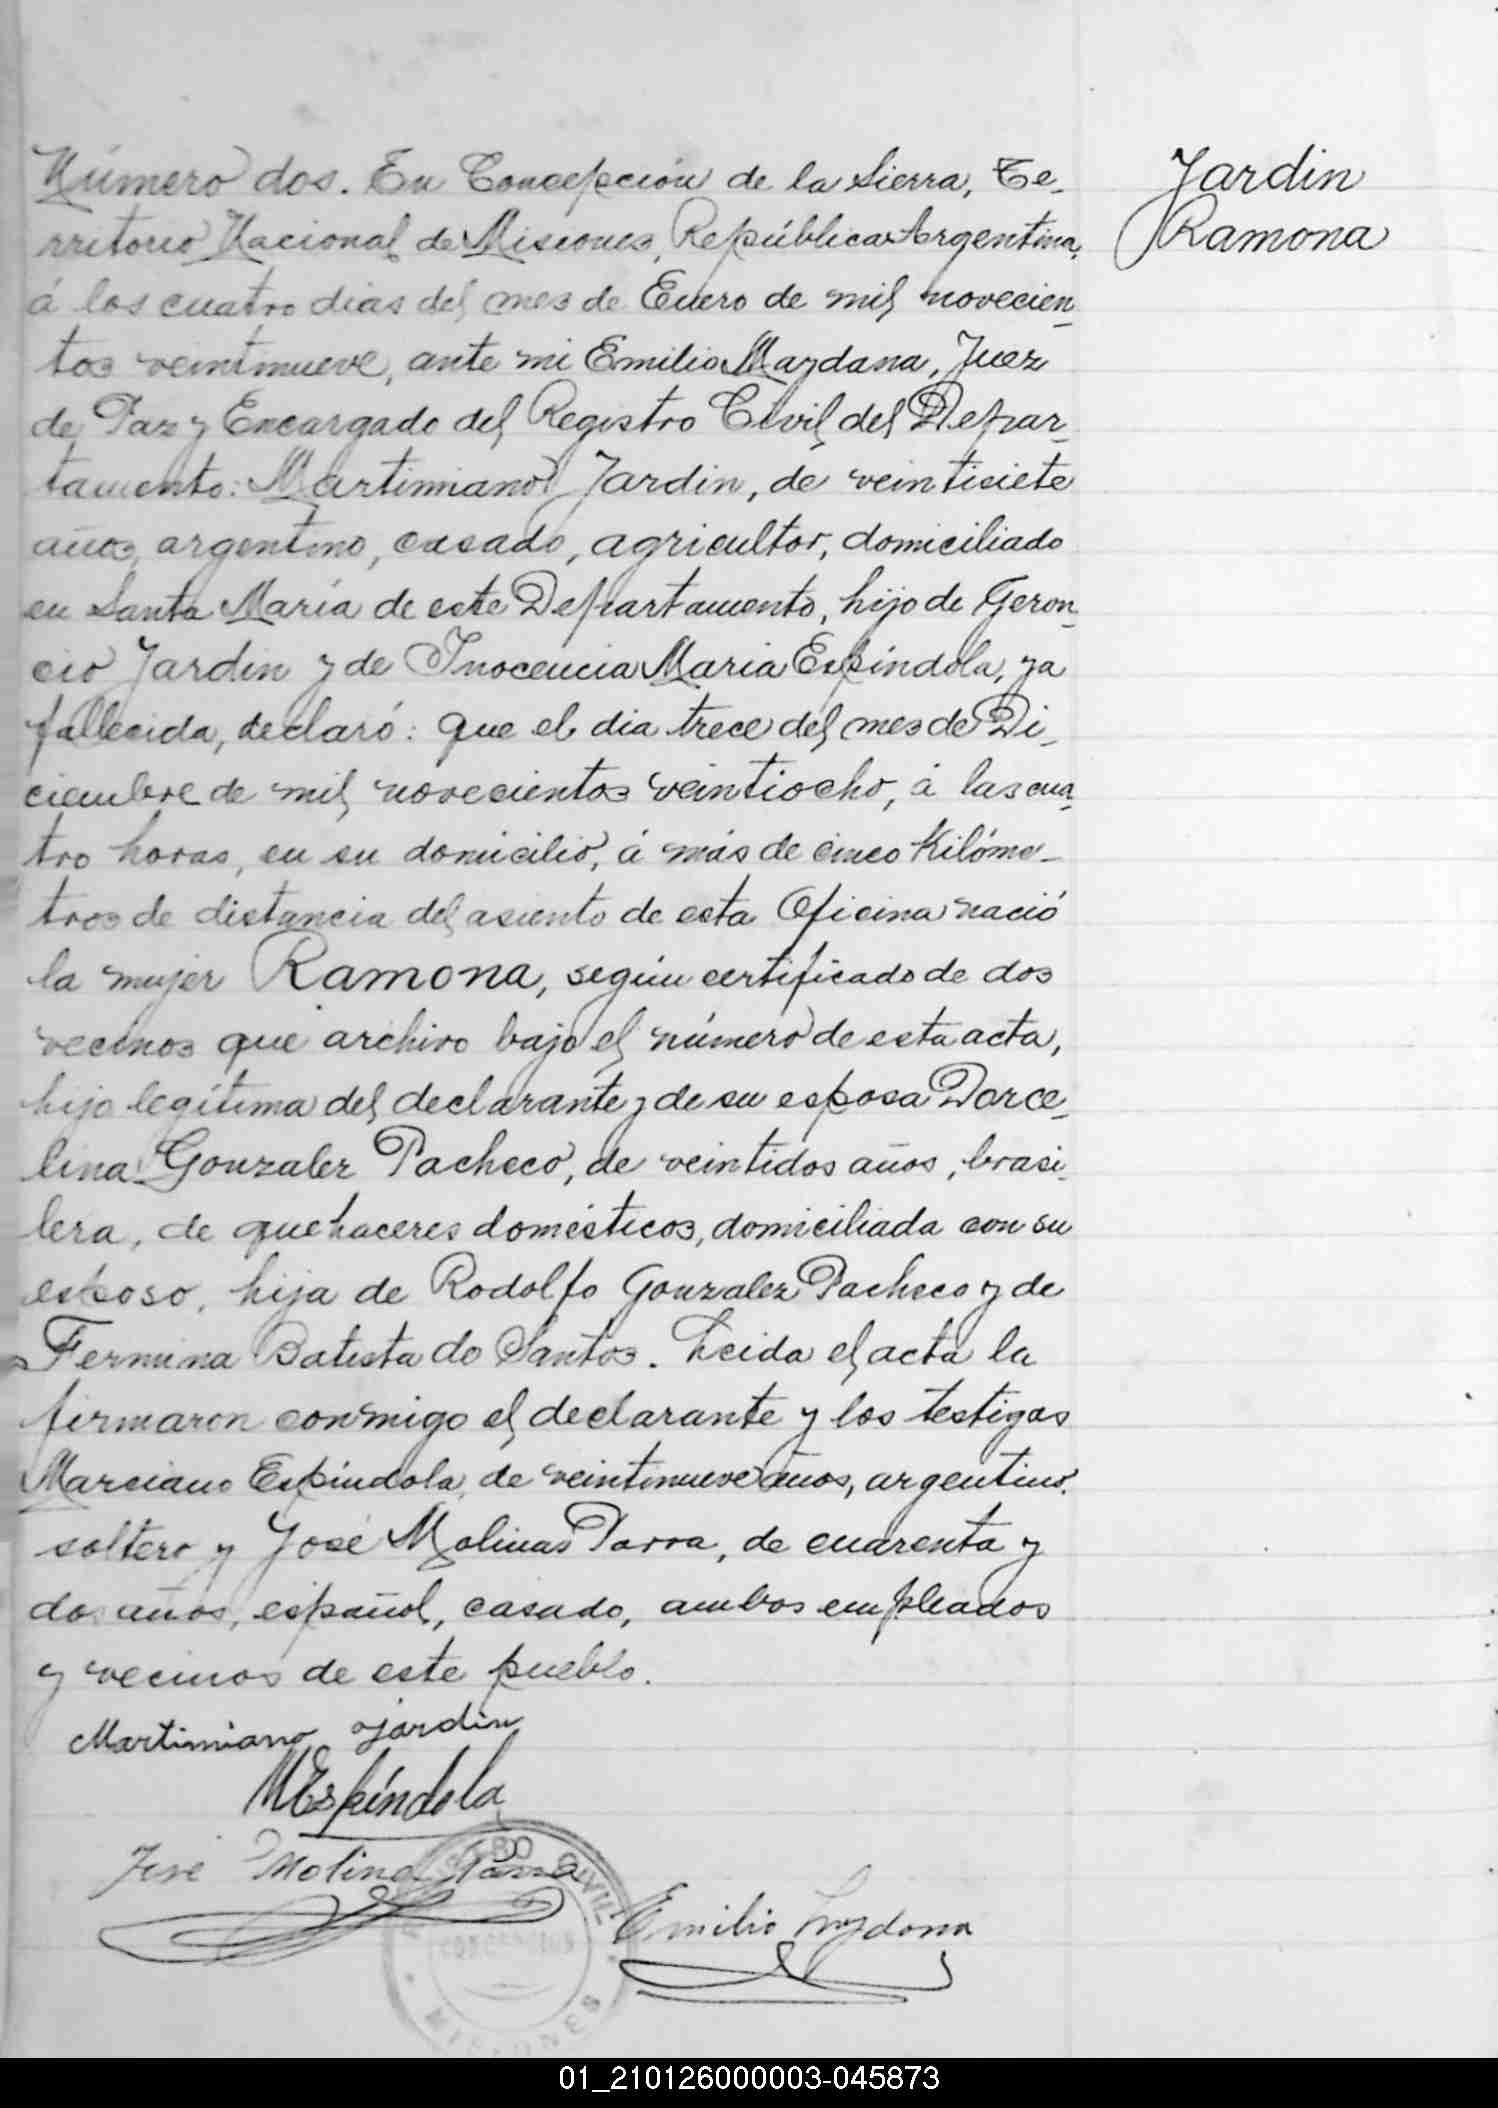 Número dos. En Concepción de la Sierra, Te-
rritorio Nacional de Misiones, República Argentina,
á los cuatro dias del mes de Enero de mil novecien-
tos veintinueve, ante mi Emilio Maydana, Juez
de Paz y Encargado del Registro Civil del Depar-
tamento: Martimiano Jardin, de veintisiete
años, argentino, casado, agricultor, domiciliado
en Santa María de este Departamento, hijo de Geron-
cio Jardin y de Inocencia Maria Espíndola, ya
fallecida, declaró: que el dia trece del mes de Di-
ciembre de mil novecientos veintiocho, á las cua-
tro horas, en su domicilio, á más de cinco Kilóme-
tros de distancia del asiento de esta Oficina nació
la mujer Ramona, según certificado de dos
vecinos que archivo bajo el número de esta acta,
hija legítima del declarante y de su esposa Dorce-
lina Gonzalez Pacheco, de veintidos años, brasi-
lera, de quehaceres domésticos, domiciliada con su
esposo, hija de Rodolfo Gonzalez Pacheco y de
Fermina Batista do Santos. Leida el acta la
firmaron conmigo el declarante y los testigos
Marciano Espíndola, de veintinueve años, argentino,
soltero y José Molinas Parra, de cuarenta y
dos años, español, casado, ambos empleados
y vecinos de este pueblo.
Martimiano Jardin
MEspíndola
José Molina Parra
Emilio Maydana
REGISTRO CIVIL
CONCEPCION
MISIONES
Jardin
Ramona
01_210126000003-045873